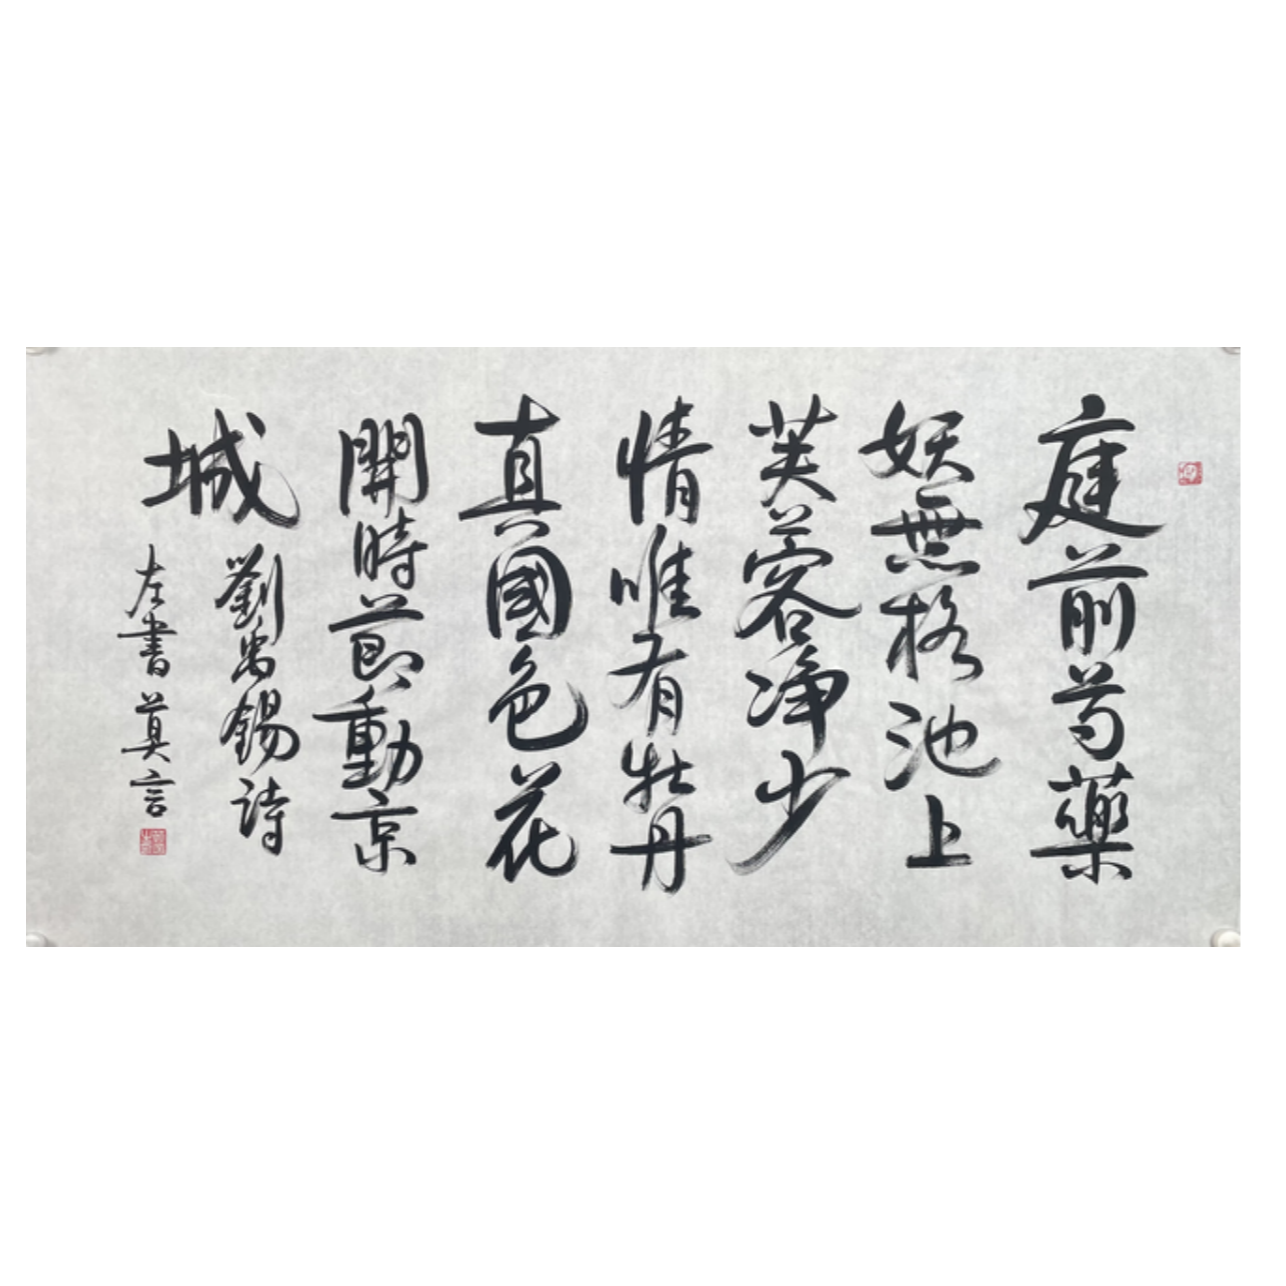 庭前芍藥
妖無格池上
芙蓉净少
情唯有牡丹
真國色花
開時節動京
城
劉禹錫詩
左書莫言